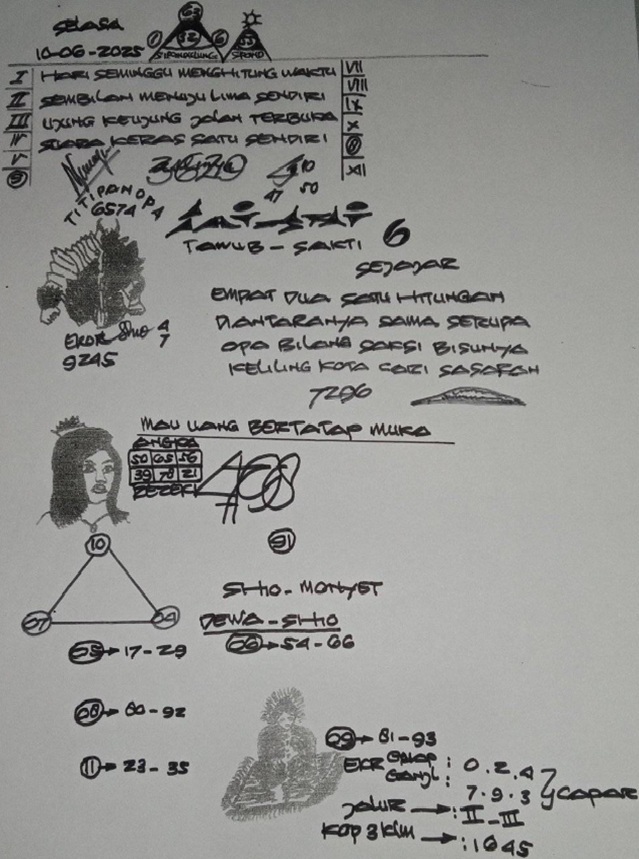 SELASA
10-06-2025
63
1 52 6 33
SHIO
I HARI SEMINGGU MENGHITUNG WAKTU VII
VIII
II SEMBILAN MENUJU LIMA SENDIRI IX
III UJUNG KEUJUNG JALAN TERBUKA X
IV SUARA KERAS SATU SENDIRI
V XII
38 20
4 10
47 50
TITIPAN OPA
6574
TAWUB - SAKTI 6
SEJAJAR
EMPAT DUA SATU HITUNGAN
DIANTARANYA SAMA SERUPA
OPA BILANG SAKSI BISUNYA
KELILING KOTA CARI SASARAN
7296
EKOR Shio 4
7
9245
MAU UANG BERTATAP MUKA
ANGKA
50 65 56
39 78 21
REZEKI
468
10
91
07 04
SHIO-MONYET
DEWA-SHIO
05→17-29
66→54-66
08→80-92
69→81-93
11→23-35
EKOR GENAP : 0.2.4
GANJIL : 7.9.3
CAPAR
JALUR → : II-III
KOP 3 KLIM → : 1645